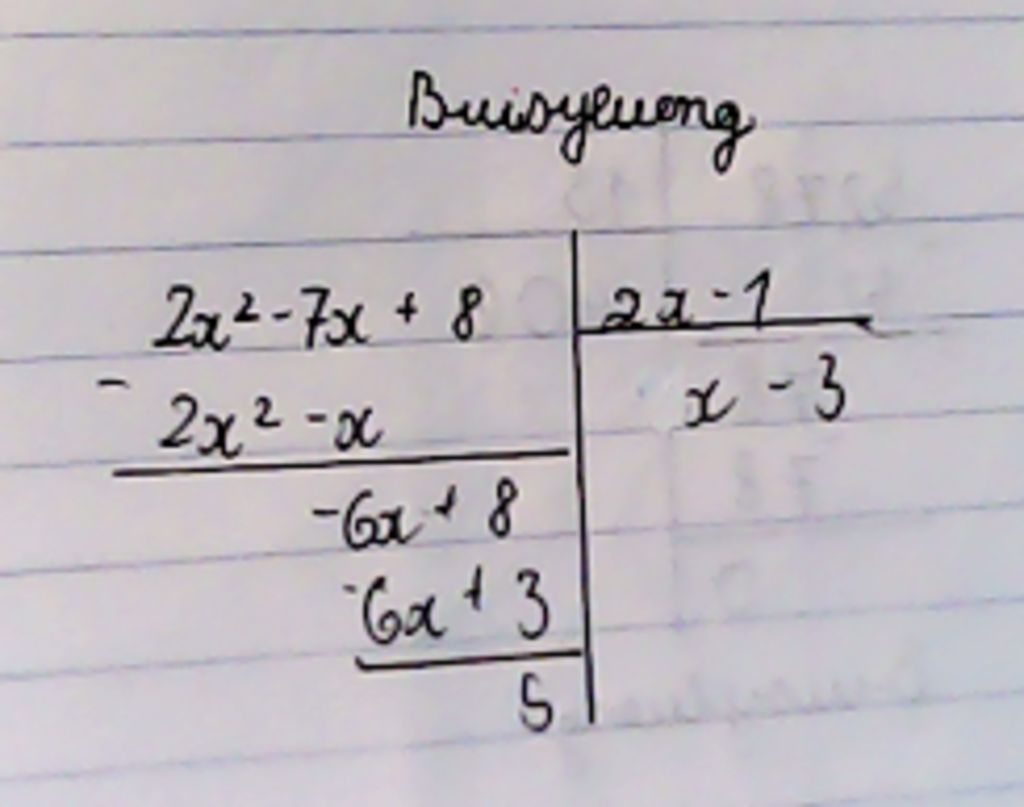 Buisyeuong
2x² - 7x + 8 | 2x - 1
- 2x² - x | x - 3
-6x + 8
-6x + 3
5